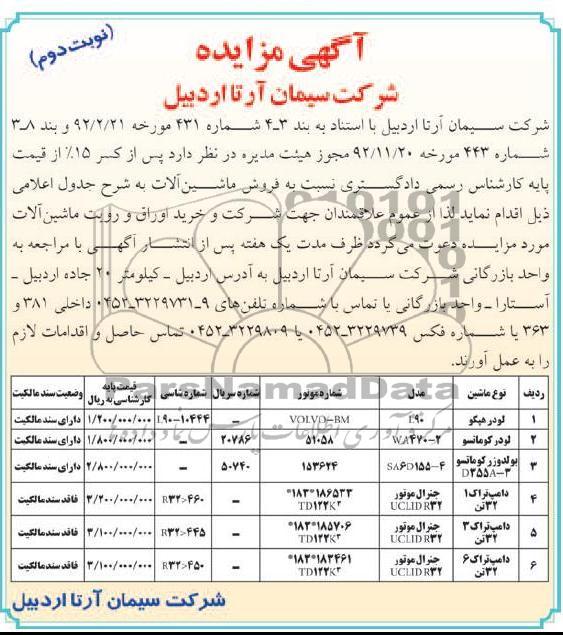 (نوبت دوم)
آگهی مزایده
شرکت سیمان آرتا اردبیل
شرکت سیمان آرتا اردبیل با استناد به بند ۳ـ۴ شماره ۴۳۱ مورخه ۹۲/۲/۲۱ و بند ۸ـ۳
شماره ۴۴۳ مورخه ۹۲/۱۱/۲۰ مجوز هیئت مدیره در نظر دارد پس از کسر ۱۵٪ از قیمت
پایه کارشناس رسمی دادگستری نسبت به فروش ماشین‌آلات به شرح جدول اعلامی
ذیل اقدام نماید لذا از عموم علاقمندان جهت شرکت و خرید اوراق و رویت ماشین‌آلات
مورد مزایده دعوت می‌گردد ظرف مدت یک هفته پس از انتشار آگهی با مراجعه به
واحد بازرگانی شرکت سیمان آرتا اردبیل به آدرس اردبیل ـ کیلومتر ۲۰ جاده اردبیل ـ
آستارا ـ واحد بازرگانی یا تماس با شماره تلفن‌های ۹ـ۳۲۲۹۷۳۱ـ۰۴۵۲ داخلی ۳۸۱ و
۳۶۳ یا شماره فکس ۳۲۲۹۷۳۹ـ۰۴۵۲ یا ۳۲۲۹۸۰۹ـ۰۴۵۲ تماس حاصل و اقدامات لازم
را به عمل آورند.
ردیف نوع ماشین مدل شماره موتور شماره سریال شماره شاسی قیمت پایه کارشناسی به ریال وضعیت سند مالکیت
۱ لودر هپکو L۹۰ VOLVO-BM – L۹۰-۱۰۴۴۴ ۱/۲۰۰/۰۰۰/۰۰۰ دارای سند مالکیت
۲ لودر کوماتسو WA۴۷۰-۲ ۵۱۰۵۸ ۲۰۷۸۶ – ۱/۸۰۰/۰۰۰/۰۰۰ دارای سند مالکیت
۳ بولدوزر کوماتسو D۳۵۵A-۳ SA۶D۱۵۵-۴ ۱۵۳۶۲۴ ۵۰۷۴۰ – ۲/۸۰۰/۰۰۰/۰۰۰ دارای سند مالکیت
۴ دامپ‌تراک ۱ ۳۲تن جنرال موتور UCLID R۳۲ *۱۸۳*۱۸۶۵۳۳ TD۱۲۲K۳ – R۳۲>۴۶۰ ۳/۲۰۰/۰۰۰/۰۰۰ فاقد سند مالکیت
۵ دامپ‌تراک ۳ ۳۲تن جنرال موتور UCLID R۳۲ *۱۸۳*۱۸۵۷۰۶ TD۱۲۲K۳ – R۳۲>۴۴۵ ۳/۱۰۰/۰۰۰/۰۰۰ فاقد سند مالکیت
۶ دامپ‌تراک ۶ ۳۲تن جنرال موتور UCLID R۳۲ *۱۸۳*۱۸۳۴۶۱ TD۱۲۲K۳ – R۳۲>۴۵۰ ۳/۱۰۰/۰۰۰/۰۰۰ فاقد سند مالکیت
شرکت سیمان آرتا اردبیل
ParsNamadData